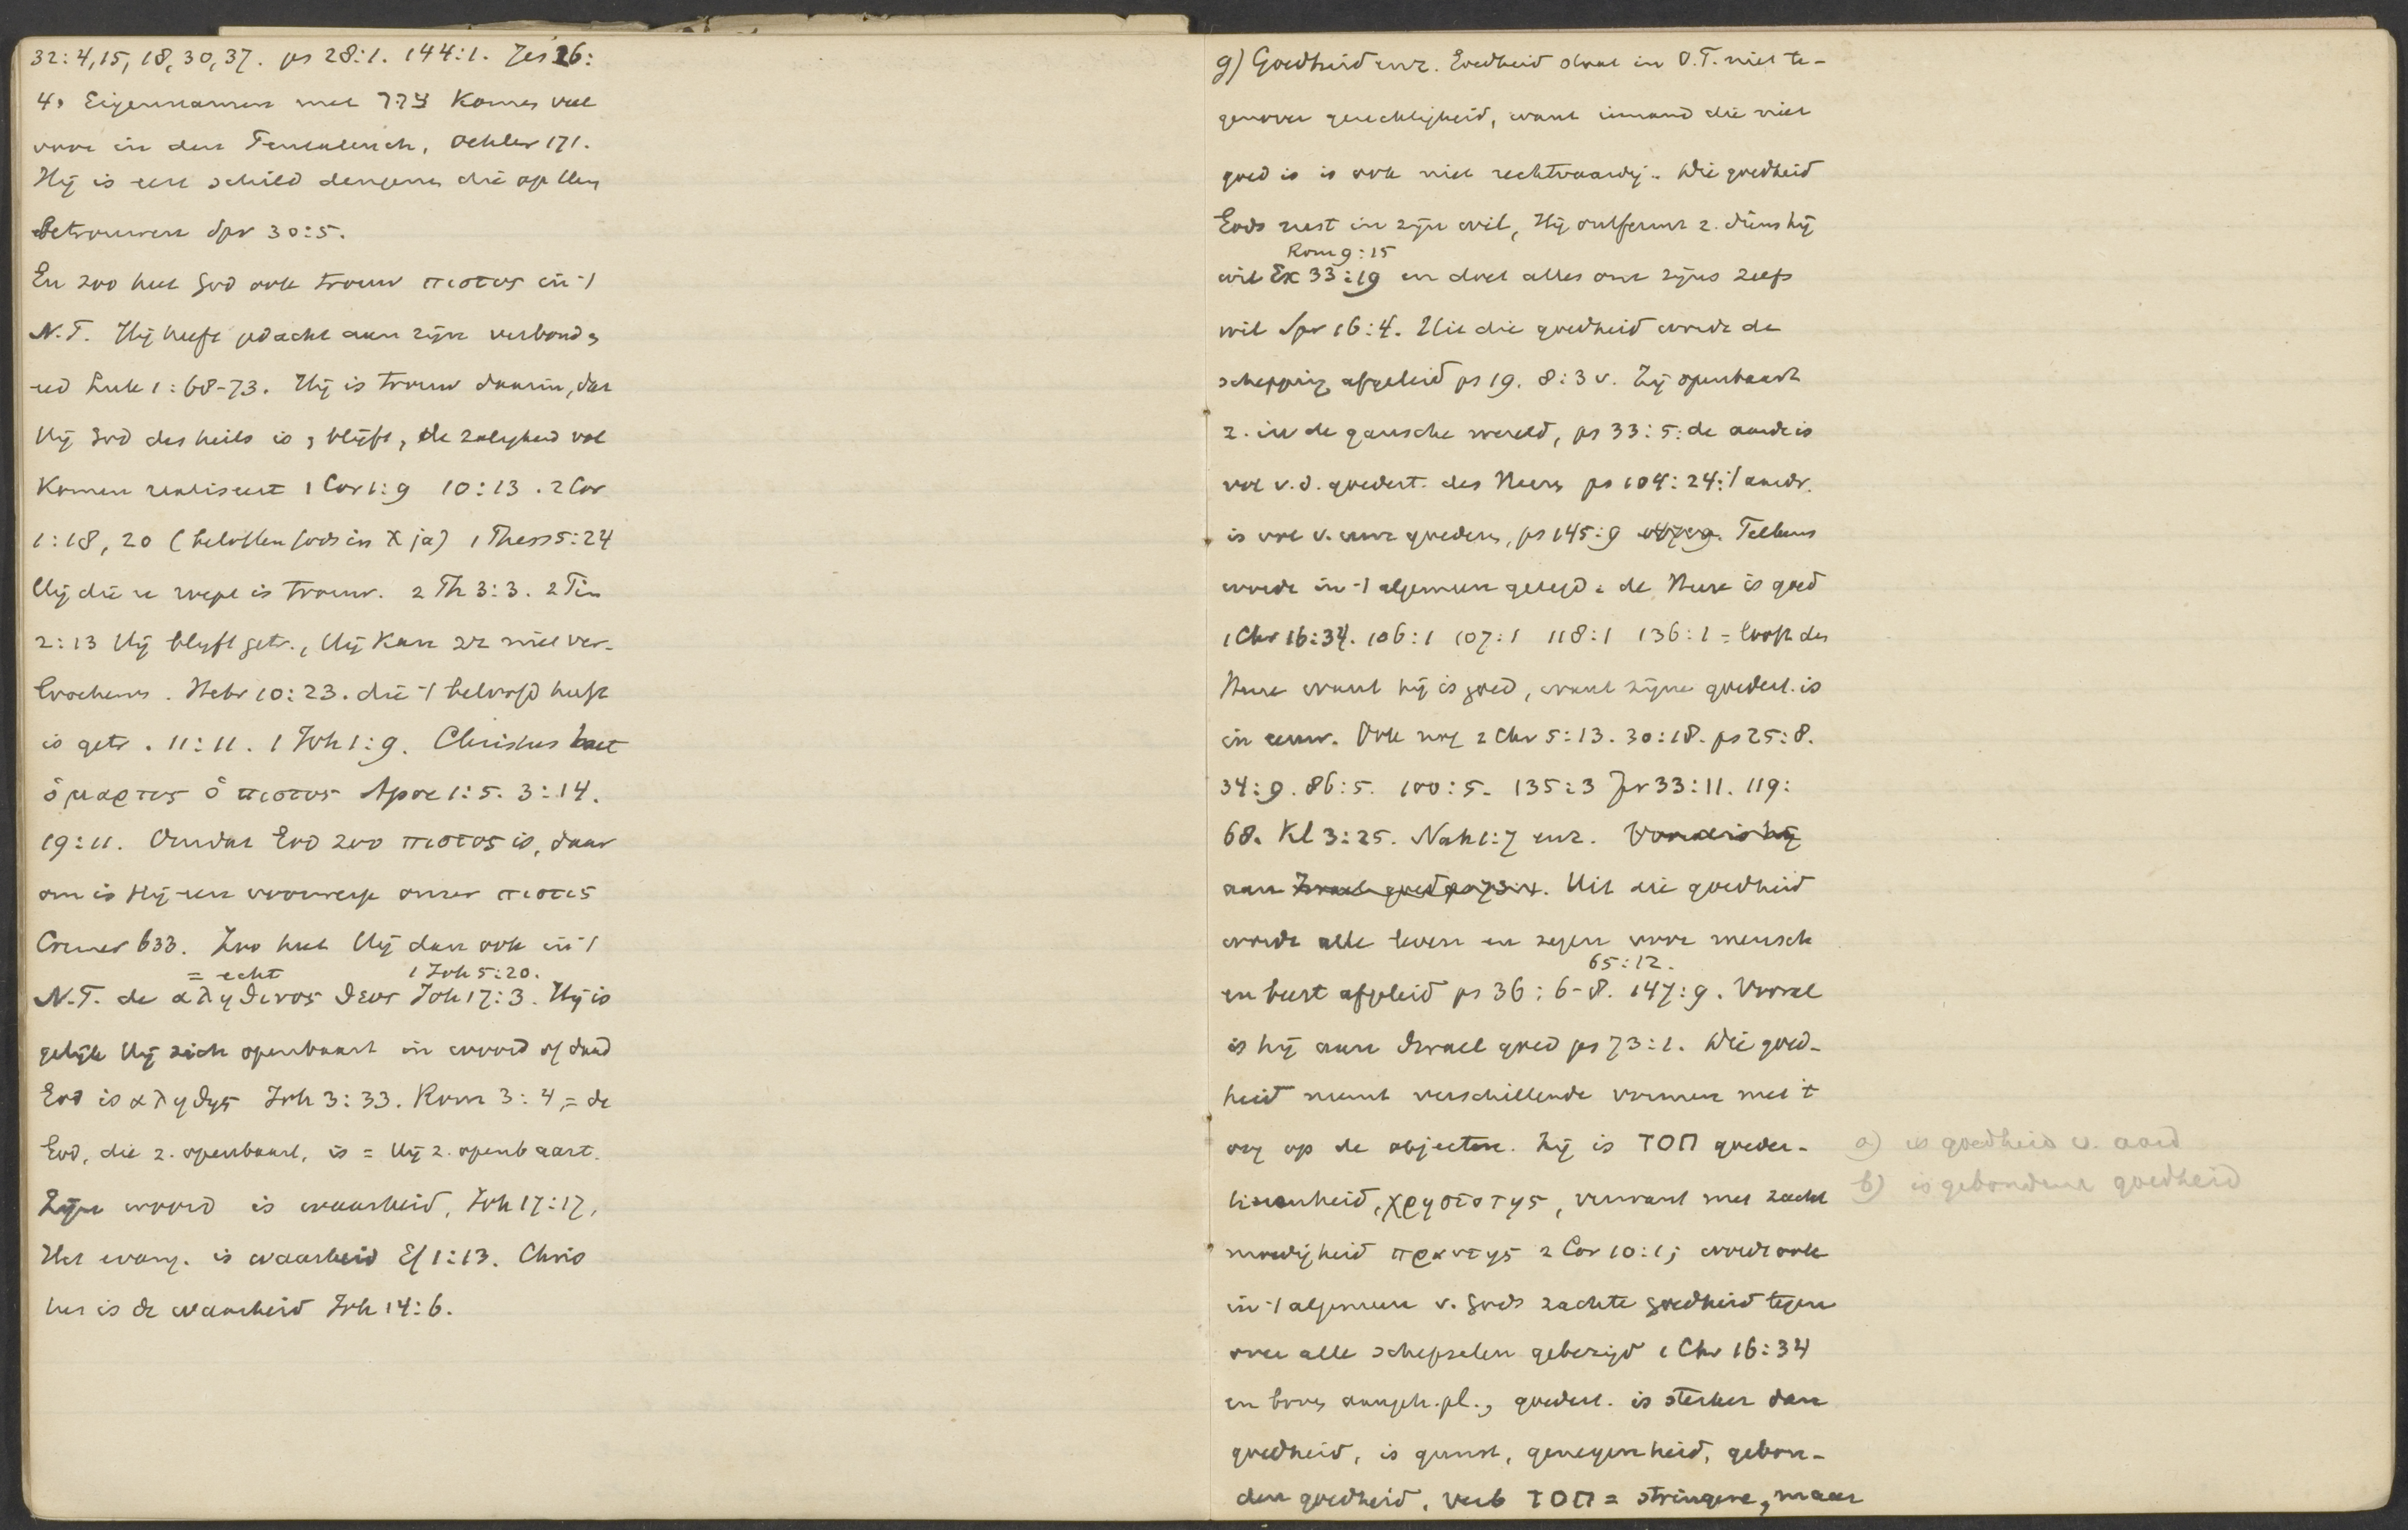 32:4,15,18,30,37. ps 28:1. 144:1. Jes 26:
4, Eigennamen met צור komen veel
voor in den Pentateuch, Oehler 171.
Hij is een schild dengenen die op Hem
betrouwen Spr 30:5.
En zoo heet God ook trouw πιστος in 't
N.T. Hij heeft gedacht aan zijn verbond,
eed Luk 1:68-73. Hij is trouw daarin, dat
Hij God des heils is, blijft, de zaligheid vol
komen realiseert 1 Cor 1:9 10:13. 2 Cor
1:18, 20 (beloften Gods in X ja) 1 Thess 5:24
Hij die u roept is trouw. 2 Th 3:3. 2 Tim
2:13 Hij blijft getr., Hij kan zz niet ver-
loochenen. Hebr 10:23. die 't beloofd heeft
is getr. 11:11. 1 Joh 1:9. Christus heet
ὁ μαρτυς ὁ πιστος Apoc 1:5. 3:14.
19:11. Omdat God zoo πιστος is, daar
om is Hij een voorwerp onzer πιστις
Cremer 633. Zoo heet Hij dan ook in 't
= echt 1 Joh 5:20.
N.T. de αληθινος θεος Joh 17:3. Hij is
gelijk Hij zich openbaart in woord of daad
God is αληθης Joh 3:33. Rom 3:4, = de
God, die z. openbaart, is = Hij z. openbaart.
Zijn woord is waarheid, Joh 17:17,
Het evang. is waarheid Ef 1:13. Chris
tus is de waarheid Joh 14:6.
g) Goedheid enz. Goedheid staat in O.T. niet te-
genover gerechtigheid, want iemand die niet
goed is is ook niet rechtvaardig. Die goedheid
Gods rust in zijn wil, Hij ontfermt z. diens hij
Rom 9:15
wil Ex 33:19 en doet alles om zijns zelfs
wil Spr 16:4. Uit die goedheid wordt de
schepping afgeleid ps 19. 8:3 v. Zij openbaart
z. in de gansche wereld, ps 33:5: de aarde is
vol v.d. goedert. des Heeren ps 104:24: 't aardr.
is vol v. uwe goederen, ps 145:9 Telkens
wordt in 't algemeen gezegd: de Heere is goed
1 Chr 16:34. 106:1 107:1 118:1 136:1 = looft den
Heere want hij is goed, want zijne goedert. is
in eeuw. Ook nog 2 Chr 5:13. 30:18. ps 25:8.
34:9. 86:5. 100:5. 135:3 Jer 33:11. 119:
68. Kl 3:25. Nah 1:7 enz. Vooral is hij
aan Israel goed ps 73:1. Uit die goedheid
wordt alle leven en zegen voor mensch
65:12.
en beest afgeleid ps 36:6-8. 147:9. Vooral
is hij aan Israel goed ps 73:1. Die goed-
heid neemt verschillende vormen met 't
oog op de objecten. Zij is חסד goeder-
tierenheid, χρηστοτης, verwant met zacht
moedigheid πραυτης 2 Cor 10:1; wordt ook
in 't algemeen v. Gods zachte goedheid tegen
over alle schepselen gebezigd 1 Chr 16:34
en boven aangeh. pl., goedert. is sterker dan
goedheid, is gunst, genegenheid, gebon-
den goedheid, verb חסד = stringere, maar
a) is goedheid v. aard
b) is gebondene goedheid